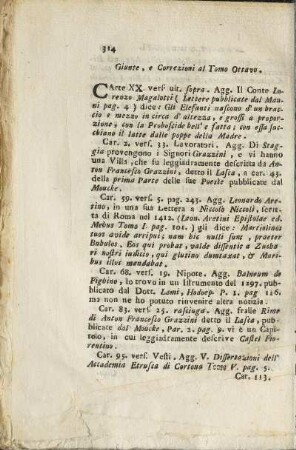 314
Giunte, e Correzioni al Tomo Ottavo.
CArte XX. vers. ult. sopra. Agg. Il Conte Lo-
renzo Magalotti (Lettere pubblicate dal Man-
ni pag. 4) dice: Gli Elefanti nascono d'un brac-
cio e mezzo in circa d'altezza, e grossi a propor-
zione; con la Proboscide bell' e fatta; con essa suc-
chiano il latte dalle poppe della Madre.
Car. 2. vers. 33. Lavoratori. Agg. Di Stag-
gia provengono i Signori Grazzini, e vi hanno
una Villa, che fu leggiadramente descritta da An-
ton Francesco Grazzini, detto il Lasca, a car. 45.
della prima Parte delle sue Poesie pubblicate dal
Moucke.
Car. 59. vers. 5. pag. 245. Agg. Leonardo Are-
tino, in una sua Lettera a Niccolò Niccoli, scrit-
ta di Roma nel 1412. (Leon. Aretini Epistolar. ed.
Mebus Tomo I. pag. 101.) gli dice: Marzolinos
tuos avide arripui: nam hic nulli sunt, praeter
Bubulos. Eos qui probat, valde dissentit a Zuccha-
ri nostri judicio, qui glutino dumtaxat, & Mori-
bus illuc mandabat.
Car. 68. vers. 19. Nipote. Agg. Balneum de
Figbine, lo trovo in un Istrumento del 1297. pub-
blicato dal Dott. Lami, Hodoep. P. 1. pag 116.
ma non ne ho potuto rinvenire altra notizia.
Car. 83. vers. 25. rassiuga. Agg. fralle Rime
di Anton Francesco Grazzini detto il Lasca, pub-
blicate dal Moucke, Par. 2. pag. 9. vi è un Capi-
tolo, in cui leggiadramente descrive Castel Fio-
rentino.
Car. 95. vers. Vesti. Agg. V. Dissertazioni dell'
Accademia Etrusca di Cortona Tomo V. pag. 5.
Car. 113.